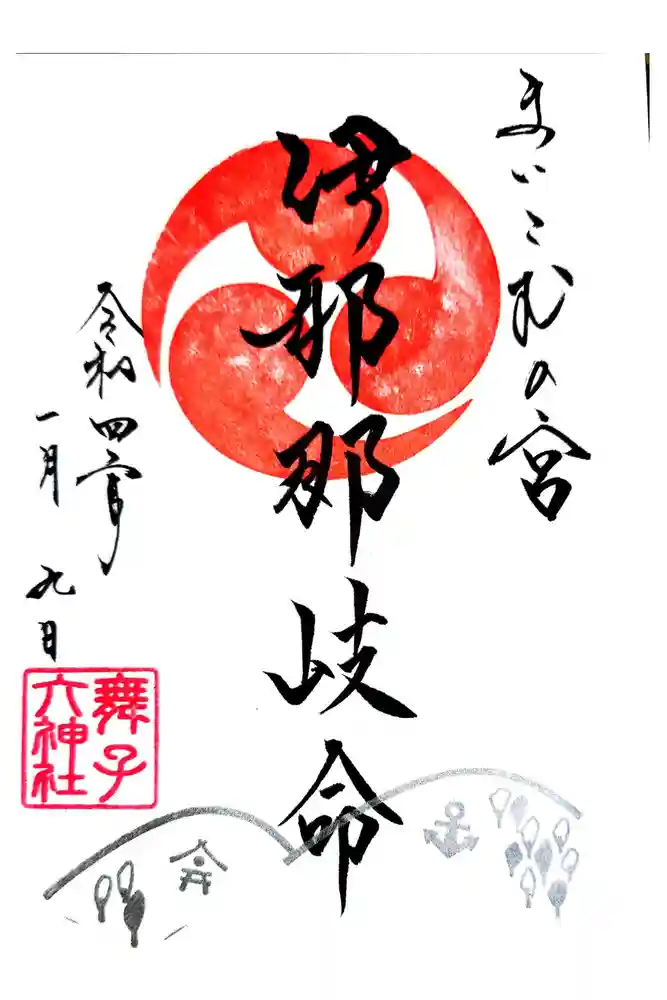 まいこむの宮
伊耶那岐命
令和四年
一月 九日
舞子
六神社